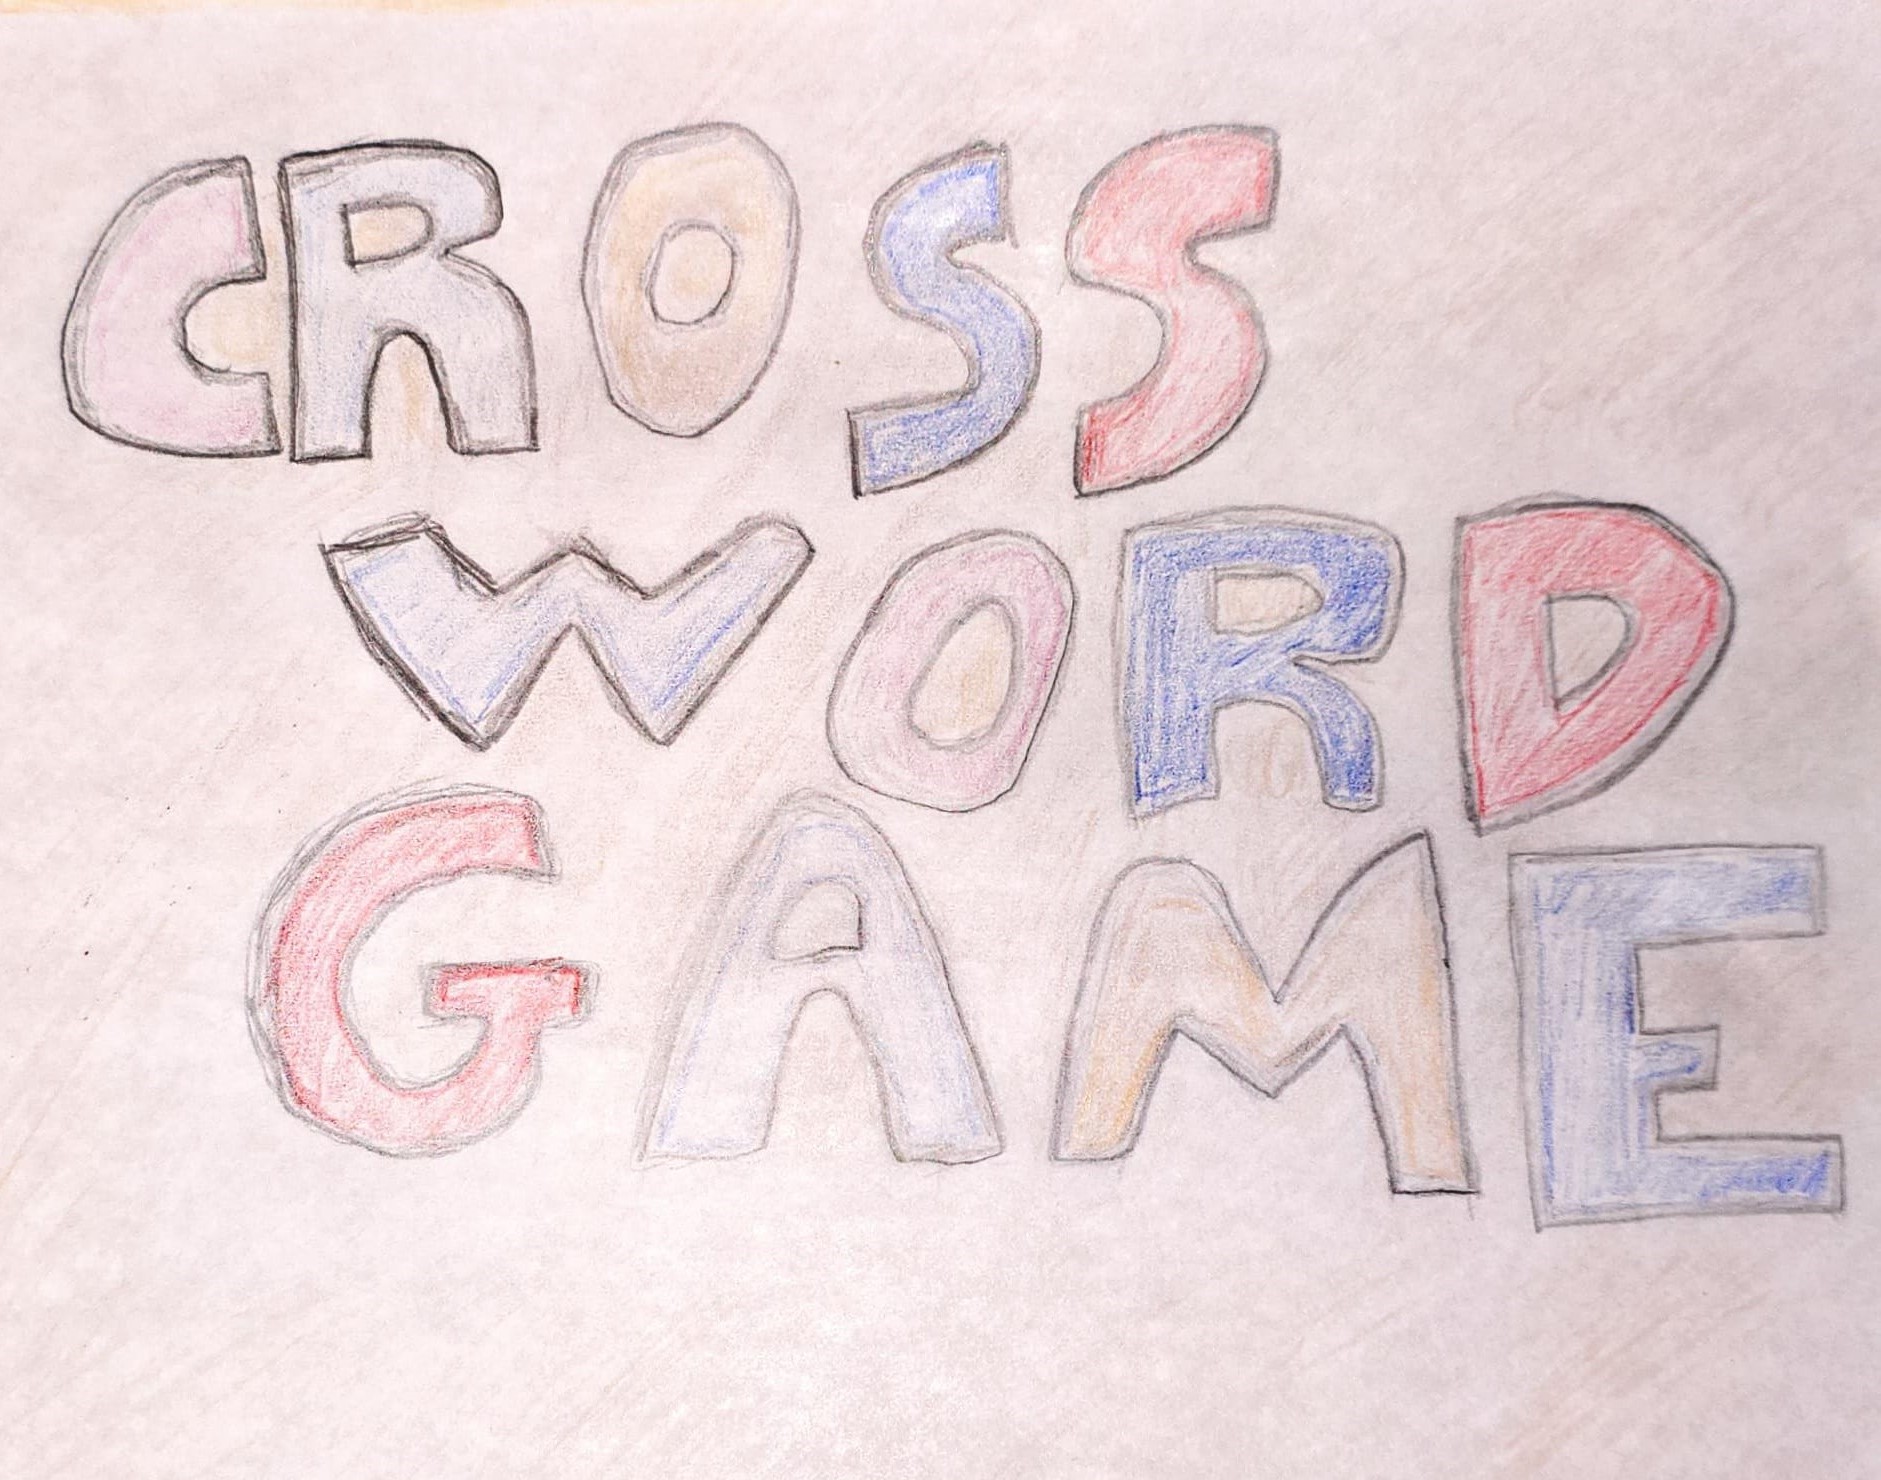 CROSS
WORD
GAME